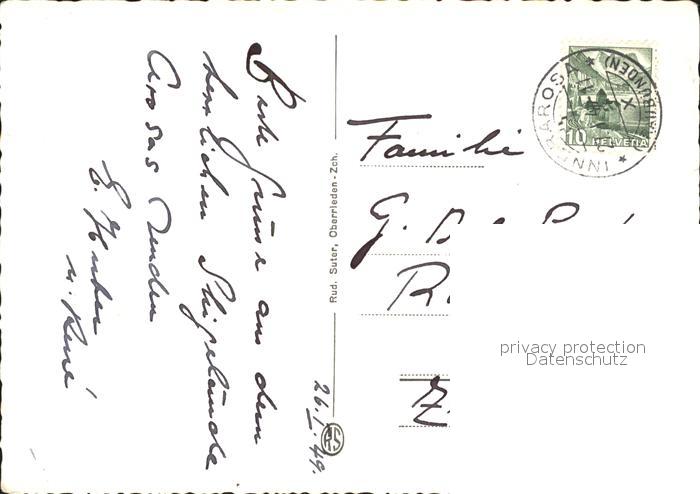 Beste Grüsse aus dem
herrlichen Skigelände
Arosas senden
E. Huber
u. René
26. I. 49.
Rud. Suter, Oberrieden-Zch.
RS
INNERAROSA
(GRAUBÜNDEN)
10 HELVETIA
Familie
G.
privacy protection
Datenschutz
Z